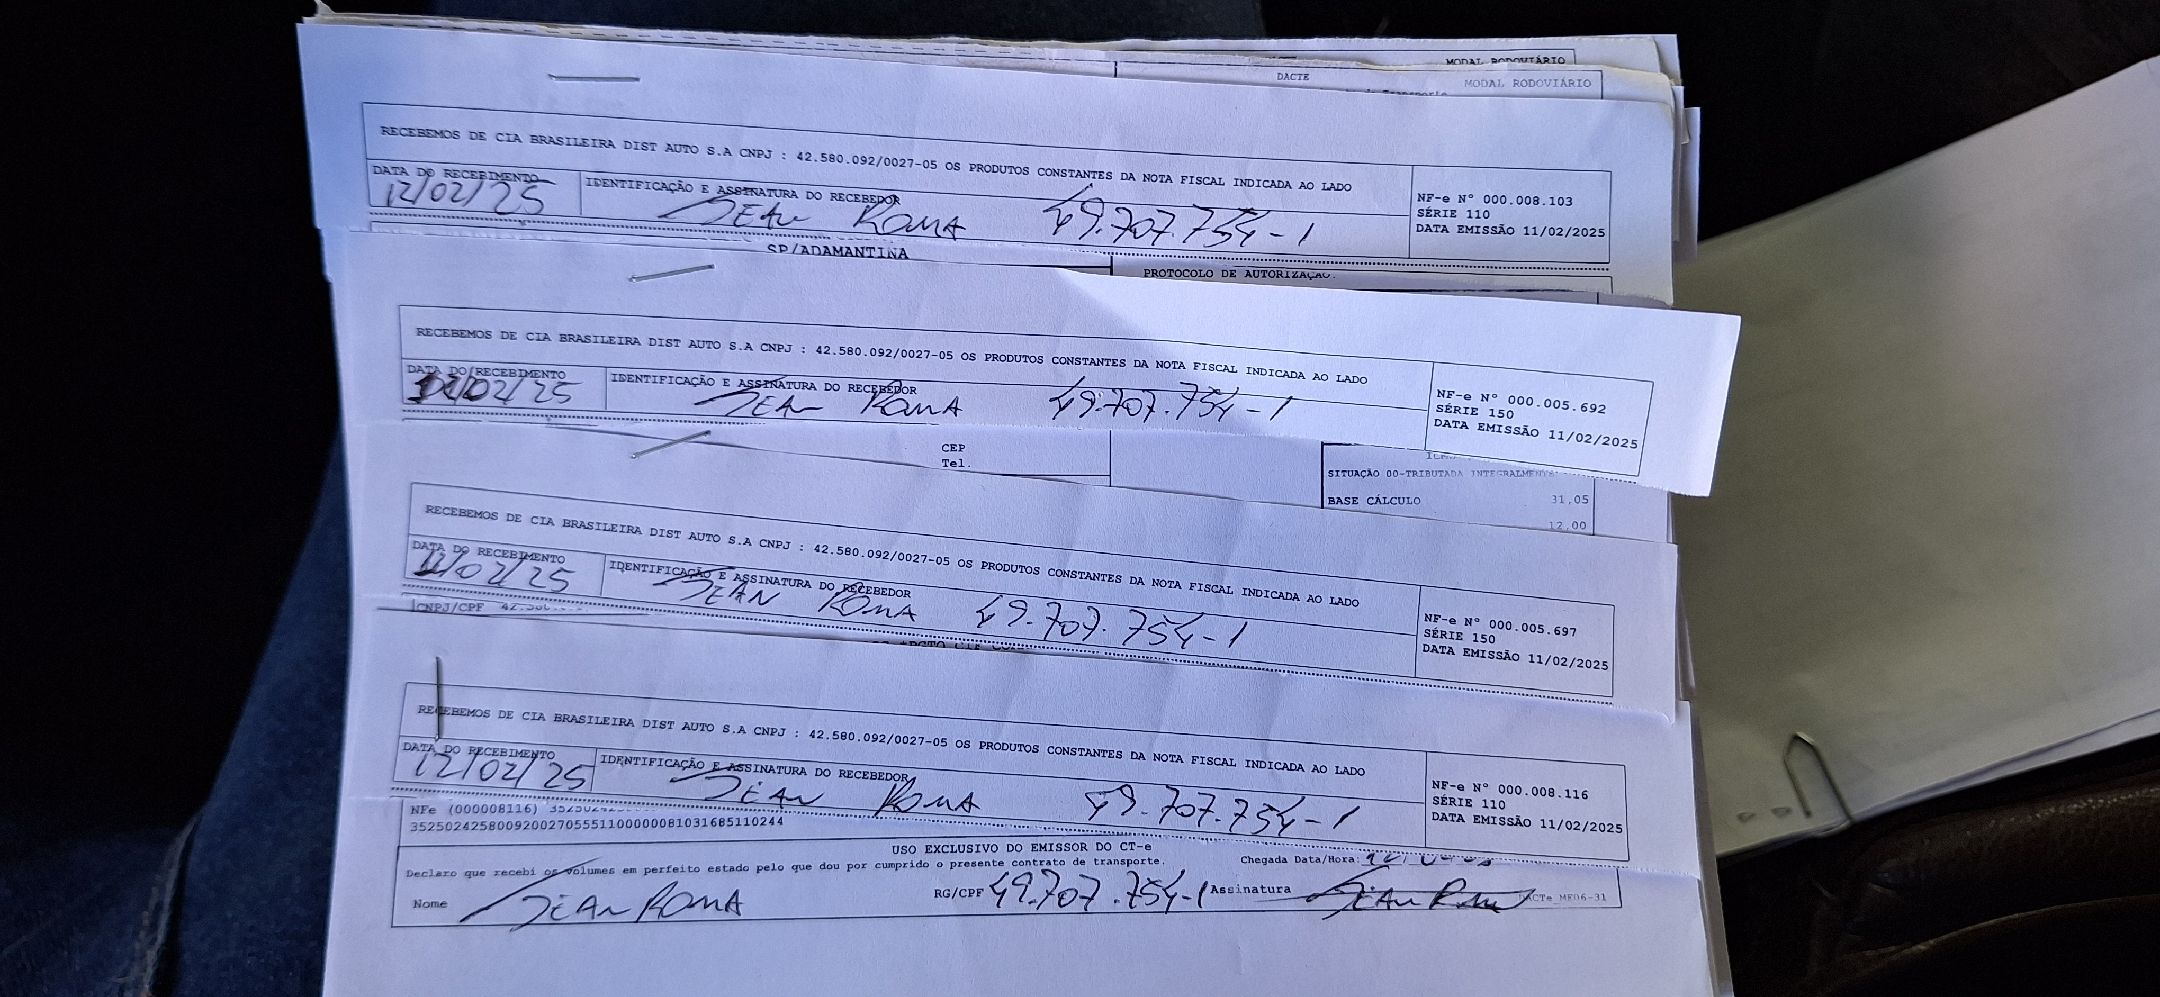 MODAL RODOVIÁRIO
DACTE
MODAL RODOVIÁRIO
RECEBEMOS DE CIA BRASILEIRA DIST AUTO S.A CNPJ : 42.580.092/0027-05 OS PRODUTOS CONSTANTES DA NOTA FISCAL INDICADA AO LADO
DATA DO RECEBIMENTO
12/02/25
IDENTIFICAÇÃO E ASSINATURA DO RECEBEDOR
JEAN ROMA 49.707.754-1
NF-e Nº 000.008.103
SÉRIE 110
DATA EMISSÃO 11/02/2025
SP/ADAMANTINA
PROTOCOLO DE AUTORIZAÇÃO.
RECEBEMOS DE CIA BRASILEIRA DIST AUTO S.A CNPJ : 42.580.092/0027-05 OS PRODUTOS CONSTANTES DA NOTA FISCAL INDICADA AO LADO
DATA DO RECEBIMENTO
12/02/25
IDENTIFICAÇÃO E ASSINATURA DO RECEBEDOR
JEAN ROMA 49.707.754-1
NF-e Nº 000.005.692
SÉRIE 150
DATA EMISSÃO 11/02/2025
CEP
Tel.
SITUAÇÃO 00-TRIBUTADA INTEGRALMENTE
BASE CÁLCULO 31,05
12,00
RECEBEMOS DE CIA BRASILEIRA DIST AUTO S.A CNPJ : 42.580.092/0027-05 OS PRODUTOS CONSTANTES DA NOTA FISCAL INDICADA AO LADO
DATA DO RECEBIMENTO
12/02/25
IDENTIFICAÇÃO E ASSINATURA DO RECEBEDOR
JEAN ROMA 49.707.754-1
NF-e Nº 000.005.697
SÉRIE 150
DATA EMISSÃO 11/02/2025
CNPJ/CPF
RECEBEMOS DE CIA BRASILEIRA DIST AUTO S.A CNPJ : 42.580.092/0027-05 OS PRODUTOS CONSTANTES DA NOTA FISCAL INDICADA AO LADO
DATA DO RECEBIMENTO
12/02/25
IDENTIFICAÇÃO E ASSINATURA DO RECEBEDOR
JEAN ROMA 49.707.754-1
NF-e Nº 000.008.116
SÉRIE 110
DATA EMISSÃO 11/02/2025
NFe (000008116)
35250242580092002705551100000081031685110244
USO EXCLUSIVO DO EMISSOR DO CT-e
Declaro que recebi os volumes em perfeito estado pelo que dou por cumprido o presente contrato de transporte. Chegada Data/Hora:
Nome JEAN ROMA RG/CPF 49.707.754-1 Assinatura JEAN ROMA DACTe_MF06-31